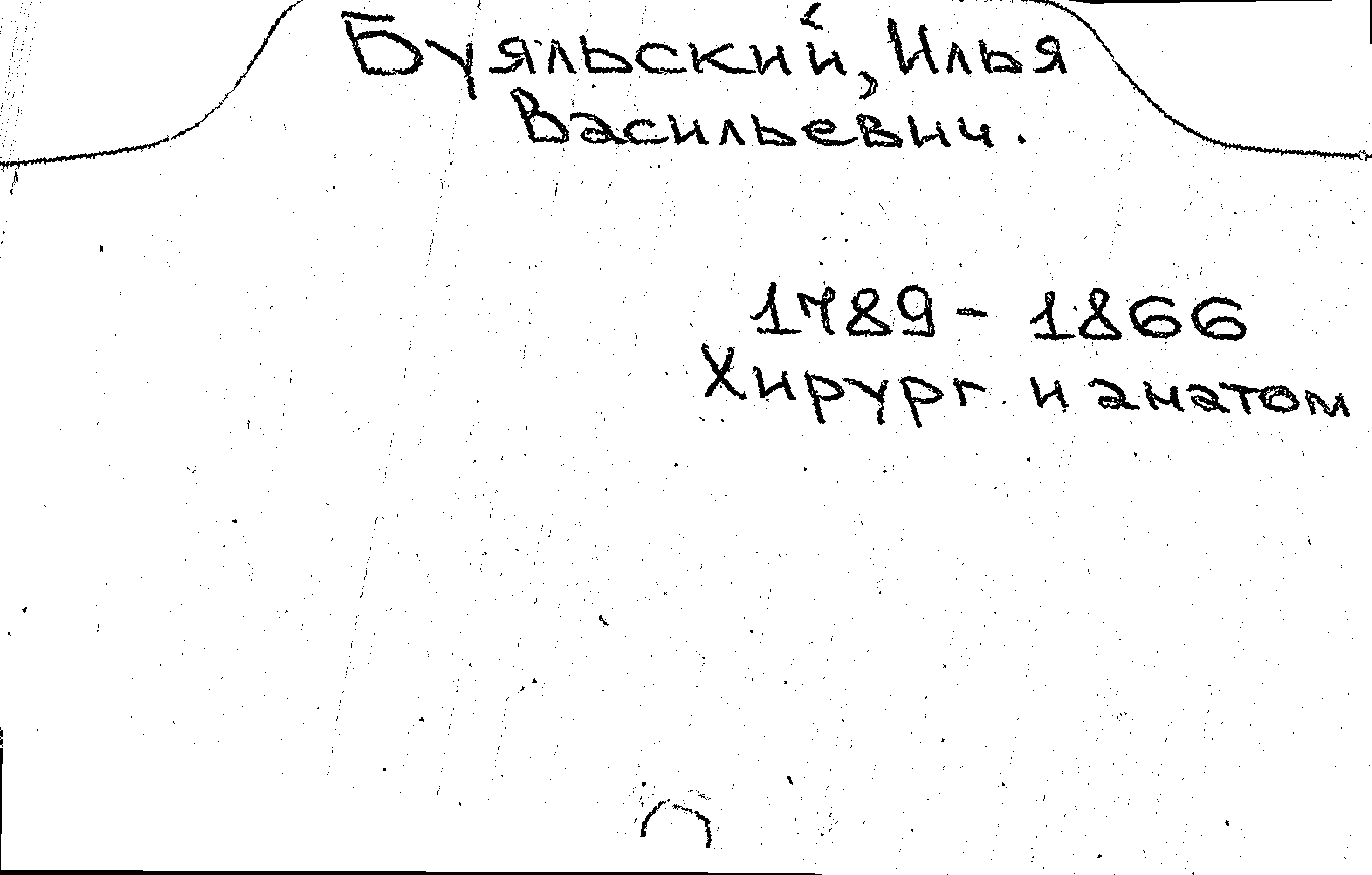 Буяльский, Илья
Васильевич.
1789 - 1866
Хирург и анатом